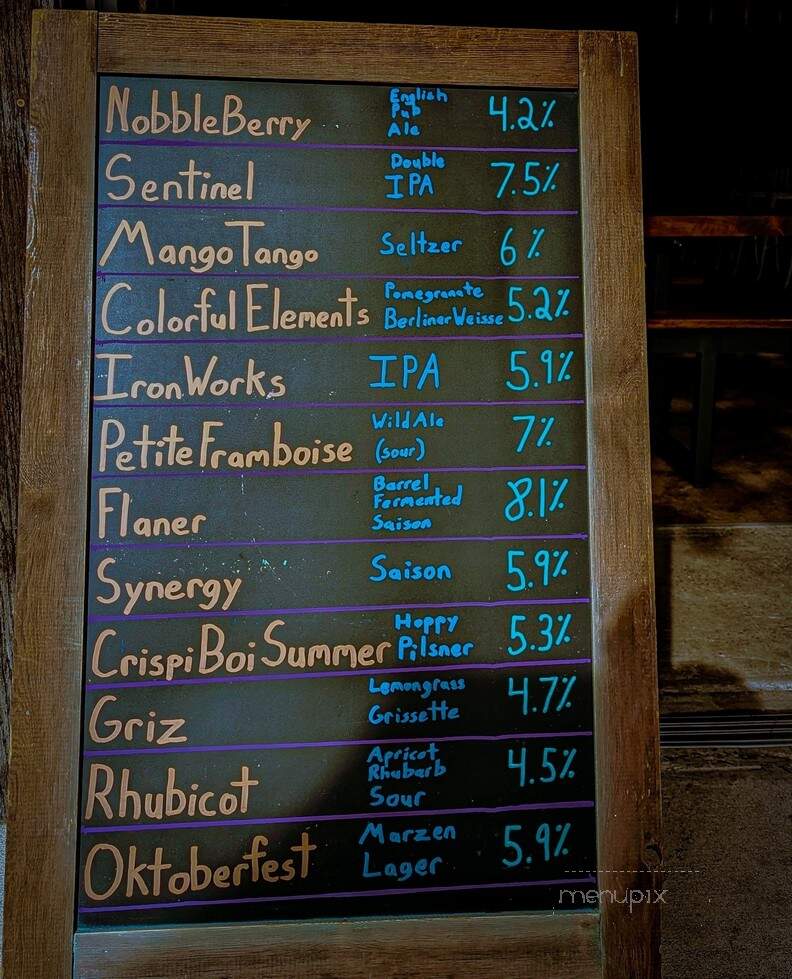 NobbleBerry English Pub Ale 4.2%
Sentinel Double IPA 7.5%
MangoTango Seltzer 6%
Colorful Elements Pomegranate Berliner Weisse 5.2%
IronWorks IPA 5.9%
Petite Framboise Wild Ale (sour) 7%
Flaner Barrel Fermented Saison 8.1%
Synergy Saison 5.9%
Crispi Boi Summer Hoppy Pilsner 5.3%
Griz Lemongrass Grissette 4.7%
Rhubicot Apricot Rhubarb Sour 4.5%
Oktoberfest Marzen Lager 5.9%
menupix